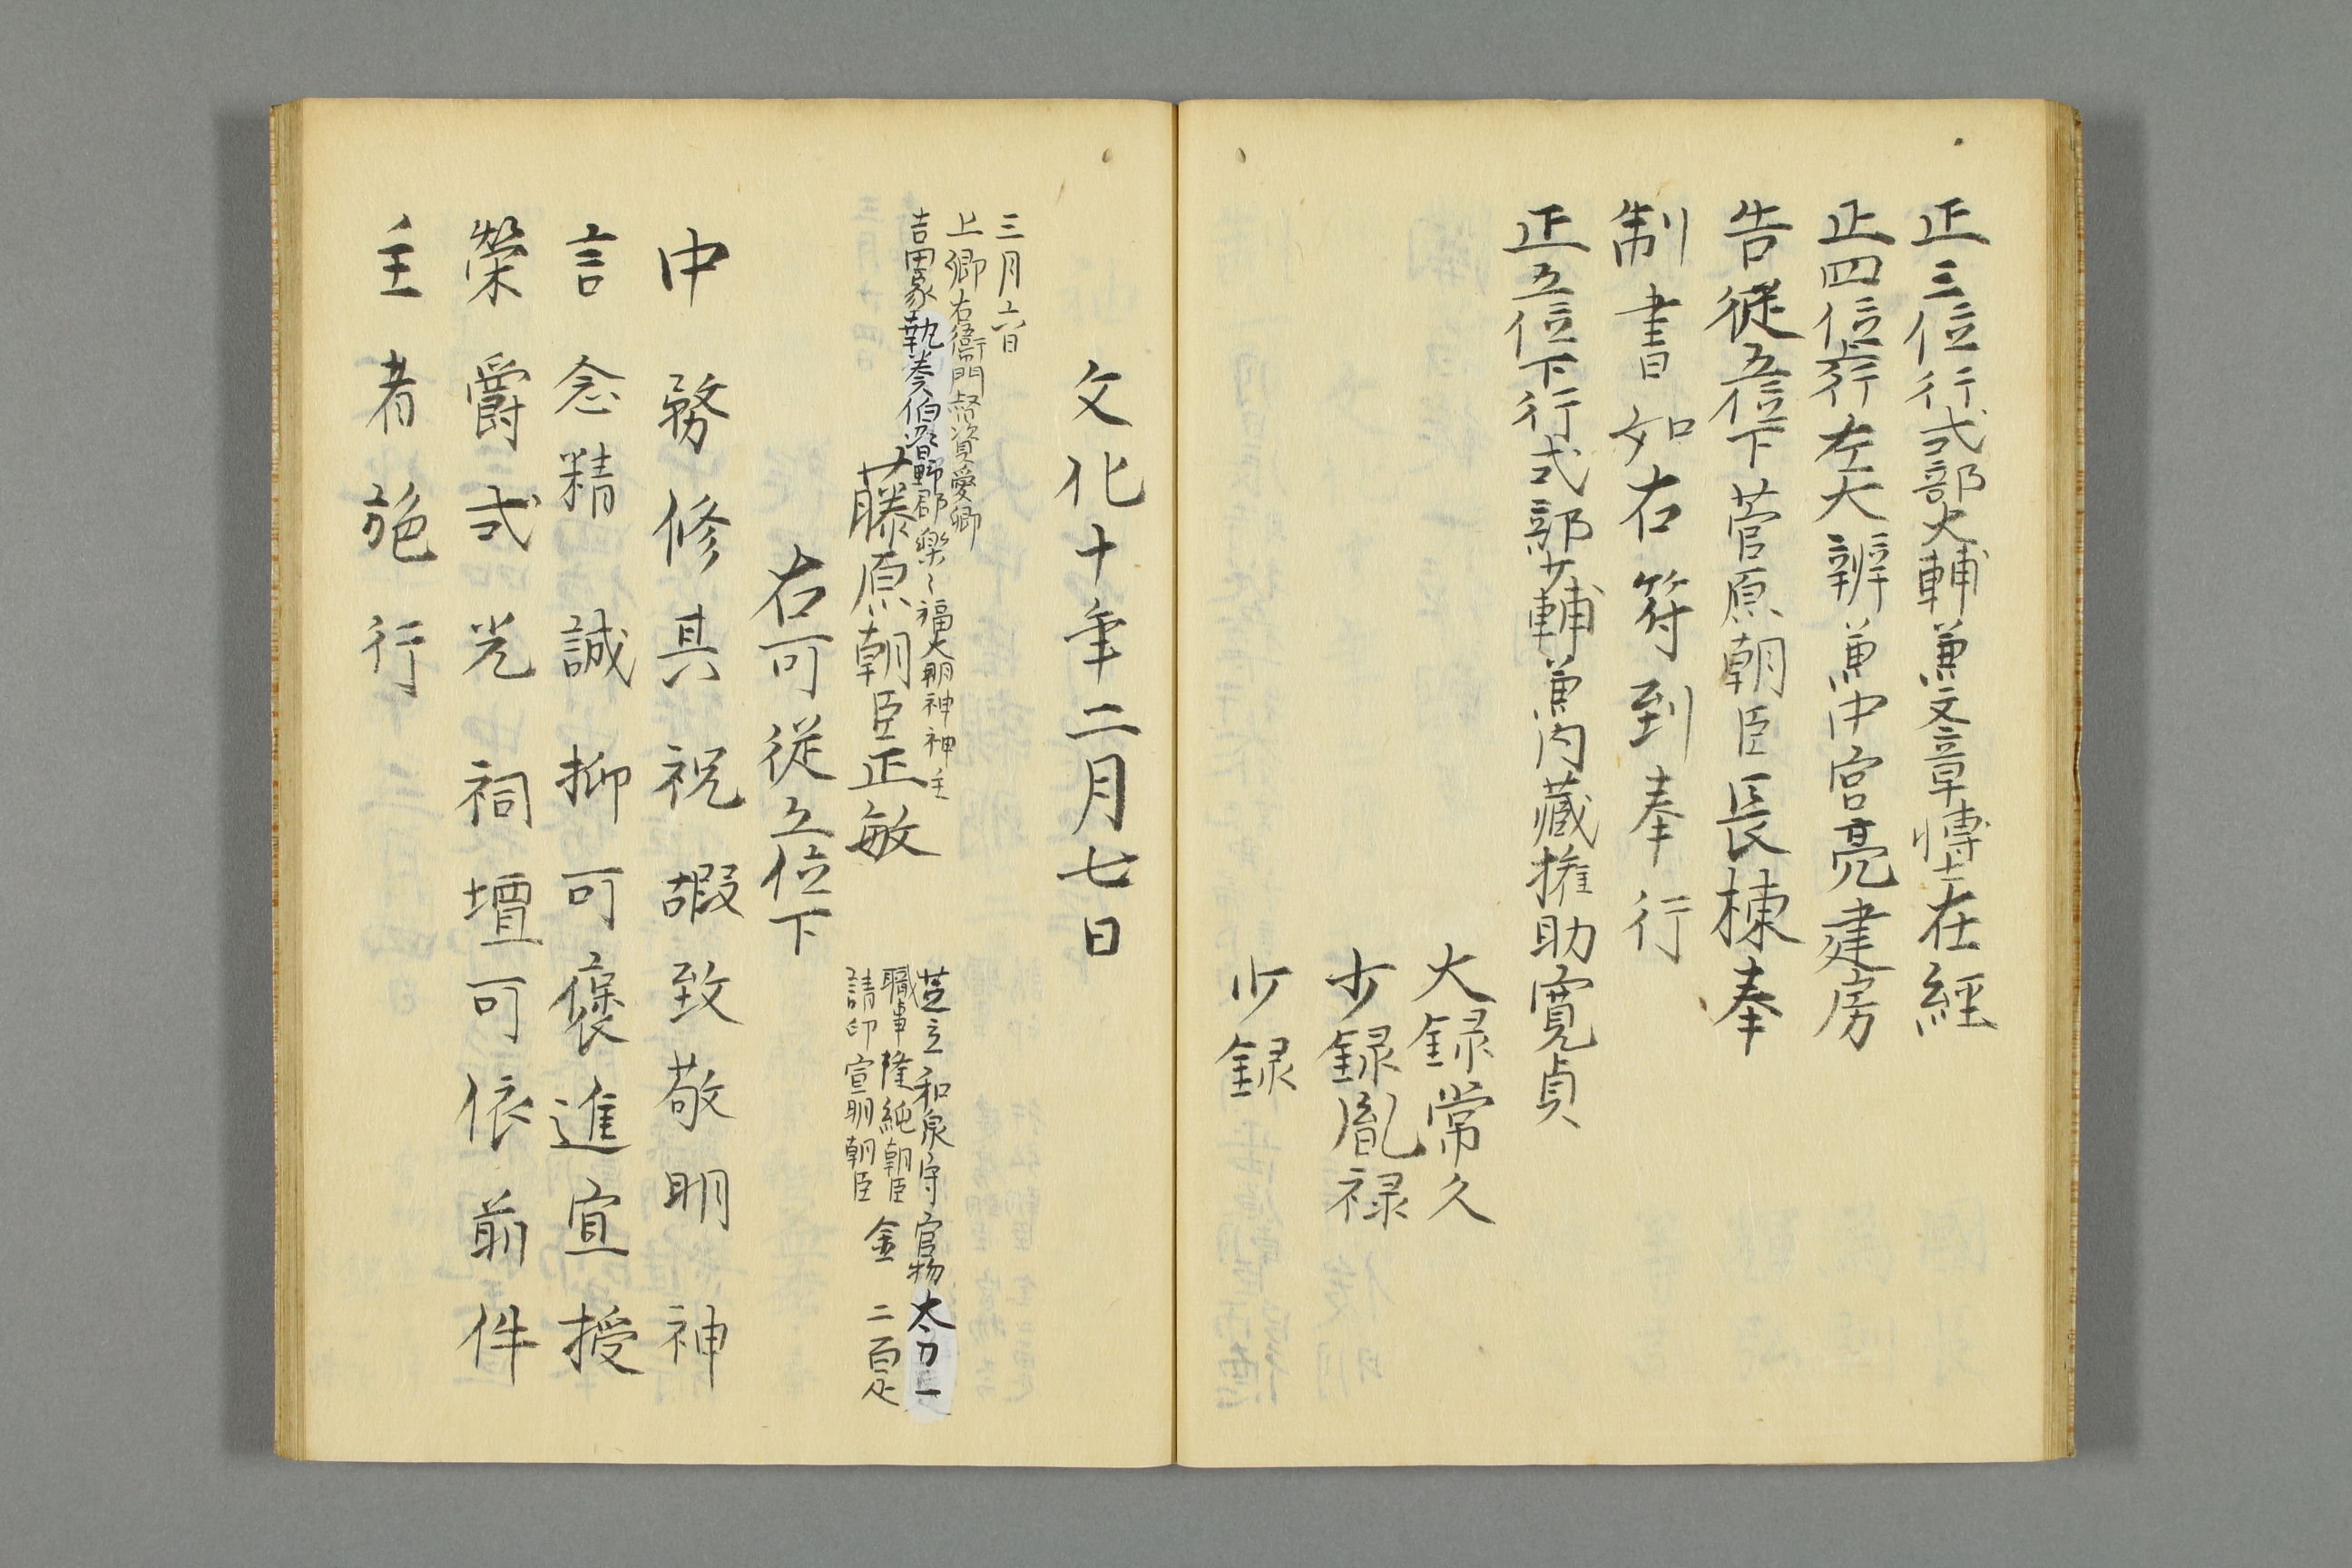 正三位行式部大輔兼文章博士在經
正四位行左大辨兼中宮亮建房
告從五位下菅原朝臣長棟奉
制書如右符到奉行
正五位下行式部少輔兼内藏権助寛貞
大録常久
少録胤禄
少録
文化十年二月七日
三月六日
上卿右衛門督資愛卿
吉田家執奏伯耆野郡楽々福大明神神主
藤原朝臣正敏
芝立和泉守官物太刀一
職事隆純朝臣金二百疋
請印宣明朝臣
右可従五位下
中務修其祝嘏致敬明神
言念精誠抑可褒進宣授
榮爵式光祠壇可依前件
主者施行